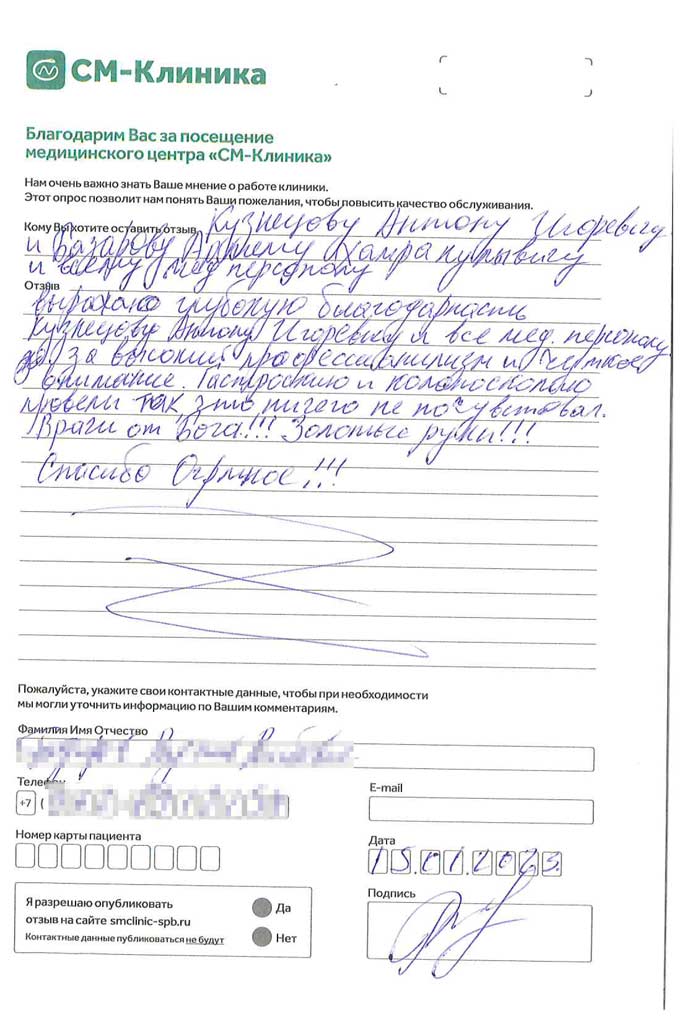 СМ-Клиника
Благодарим Вас за посещение
медицинского центра «СМ-Клиника»
Нам очень важно знать Ваше мнение о работе клиники.
Этот опрос позволит нам понять Ваши пожелания, чтобы повысить качество обслуживания.
Кому Вы хотите оставить отзыв Кузнецову Антону Игоревичу
и
и всему мед персоналу
Отзыв
выражаю глубокую благодарность
Кузнецову Антону Игоревичу и все мед. персоналу
за высокий профессионализм и чуткое
внимание. Гастроскопию и колоноскопию
провели так что ничего не почувствовал.
Врачи от Бога!!! Золотые руки!!!
Спасибо Огромное!!!
Пожалуйста, укажите свои контактные данные, чтобы при необходимости
мы могли уточнить информацию по Вашим комментариям.
Фамилия Имя Отчество
Телефон
+7 (
E-mail
Номер карты пациента
Дата
15.01.2023.
Подпись
Я разрешаю опубликовать
отзыв на сайте smclinic-spb.ru
Контактные данные публиковаться не будут
Да
Нет